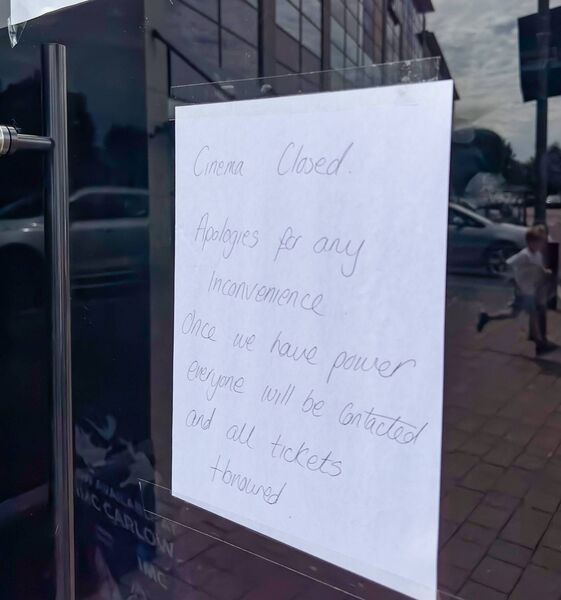 Cinema Closed.
Apologies for any
Inconvenience
Once we have power
everyone will be Contacted
and all tickets
Honoured.
IMC CARLOW
IMC